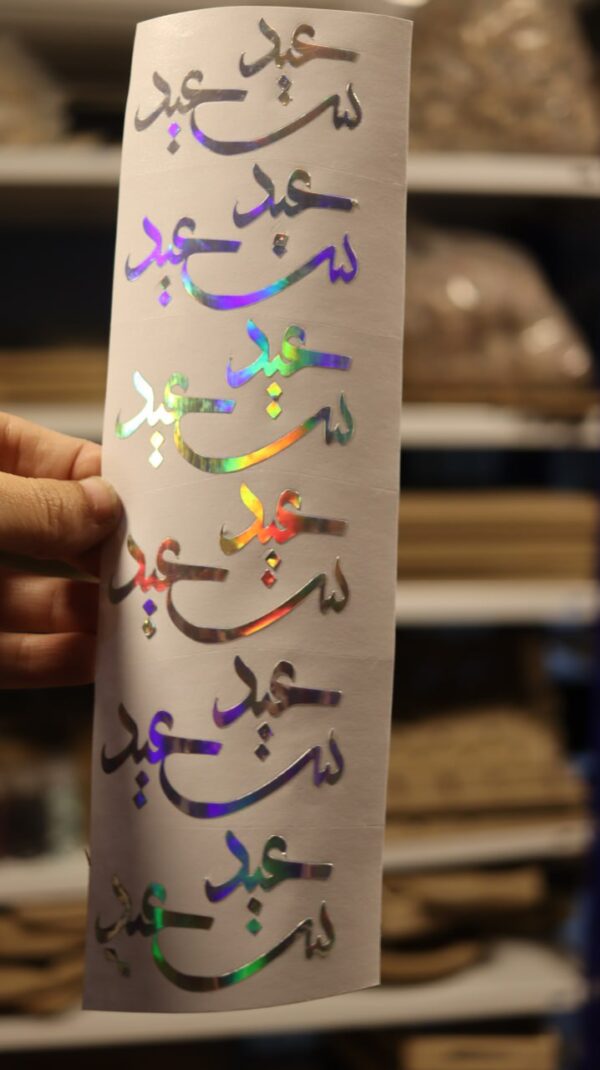 عيد سعيد
عيد سعيد
عيد سعيد
عيد سعيد
عيد سعيد
عيد سعيد